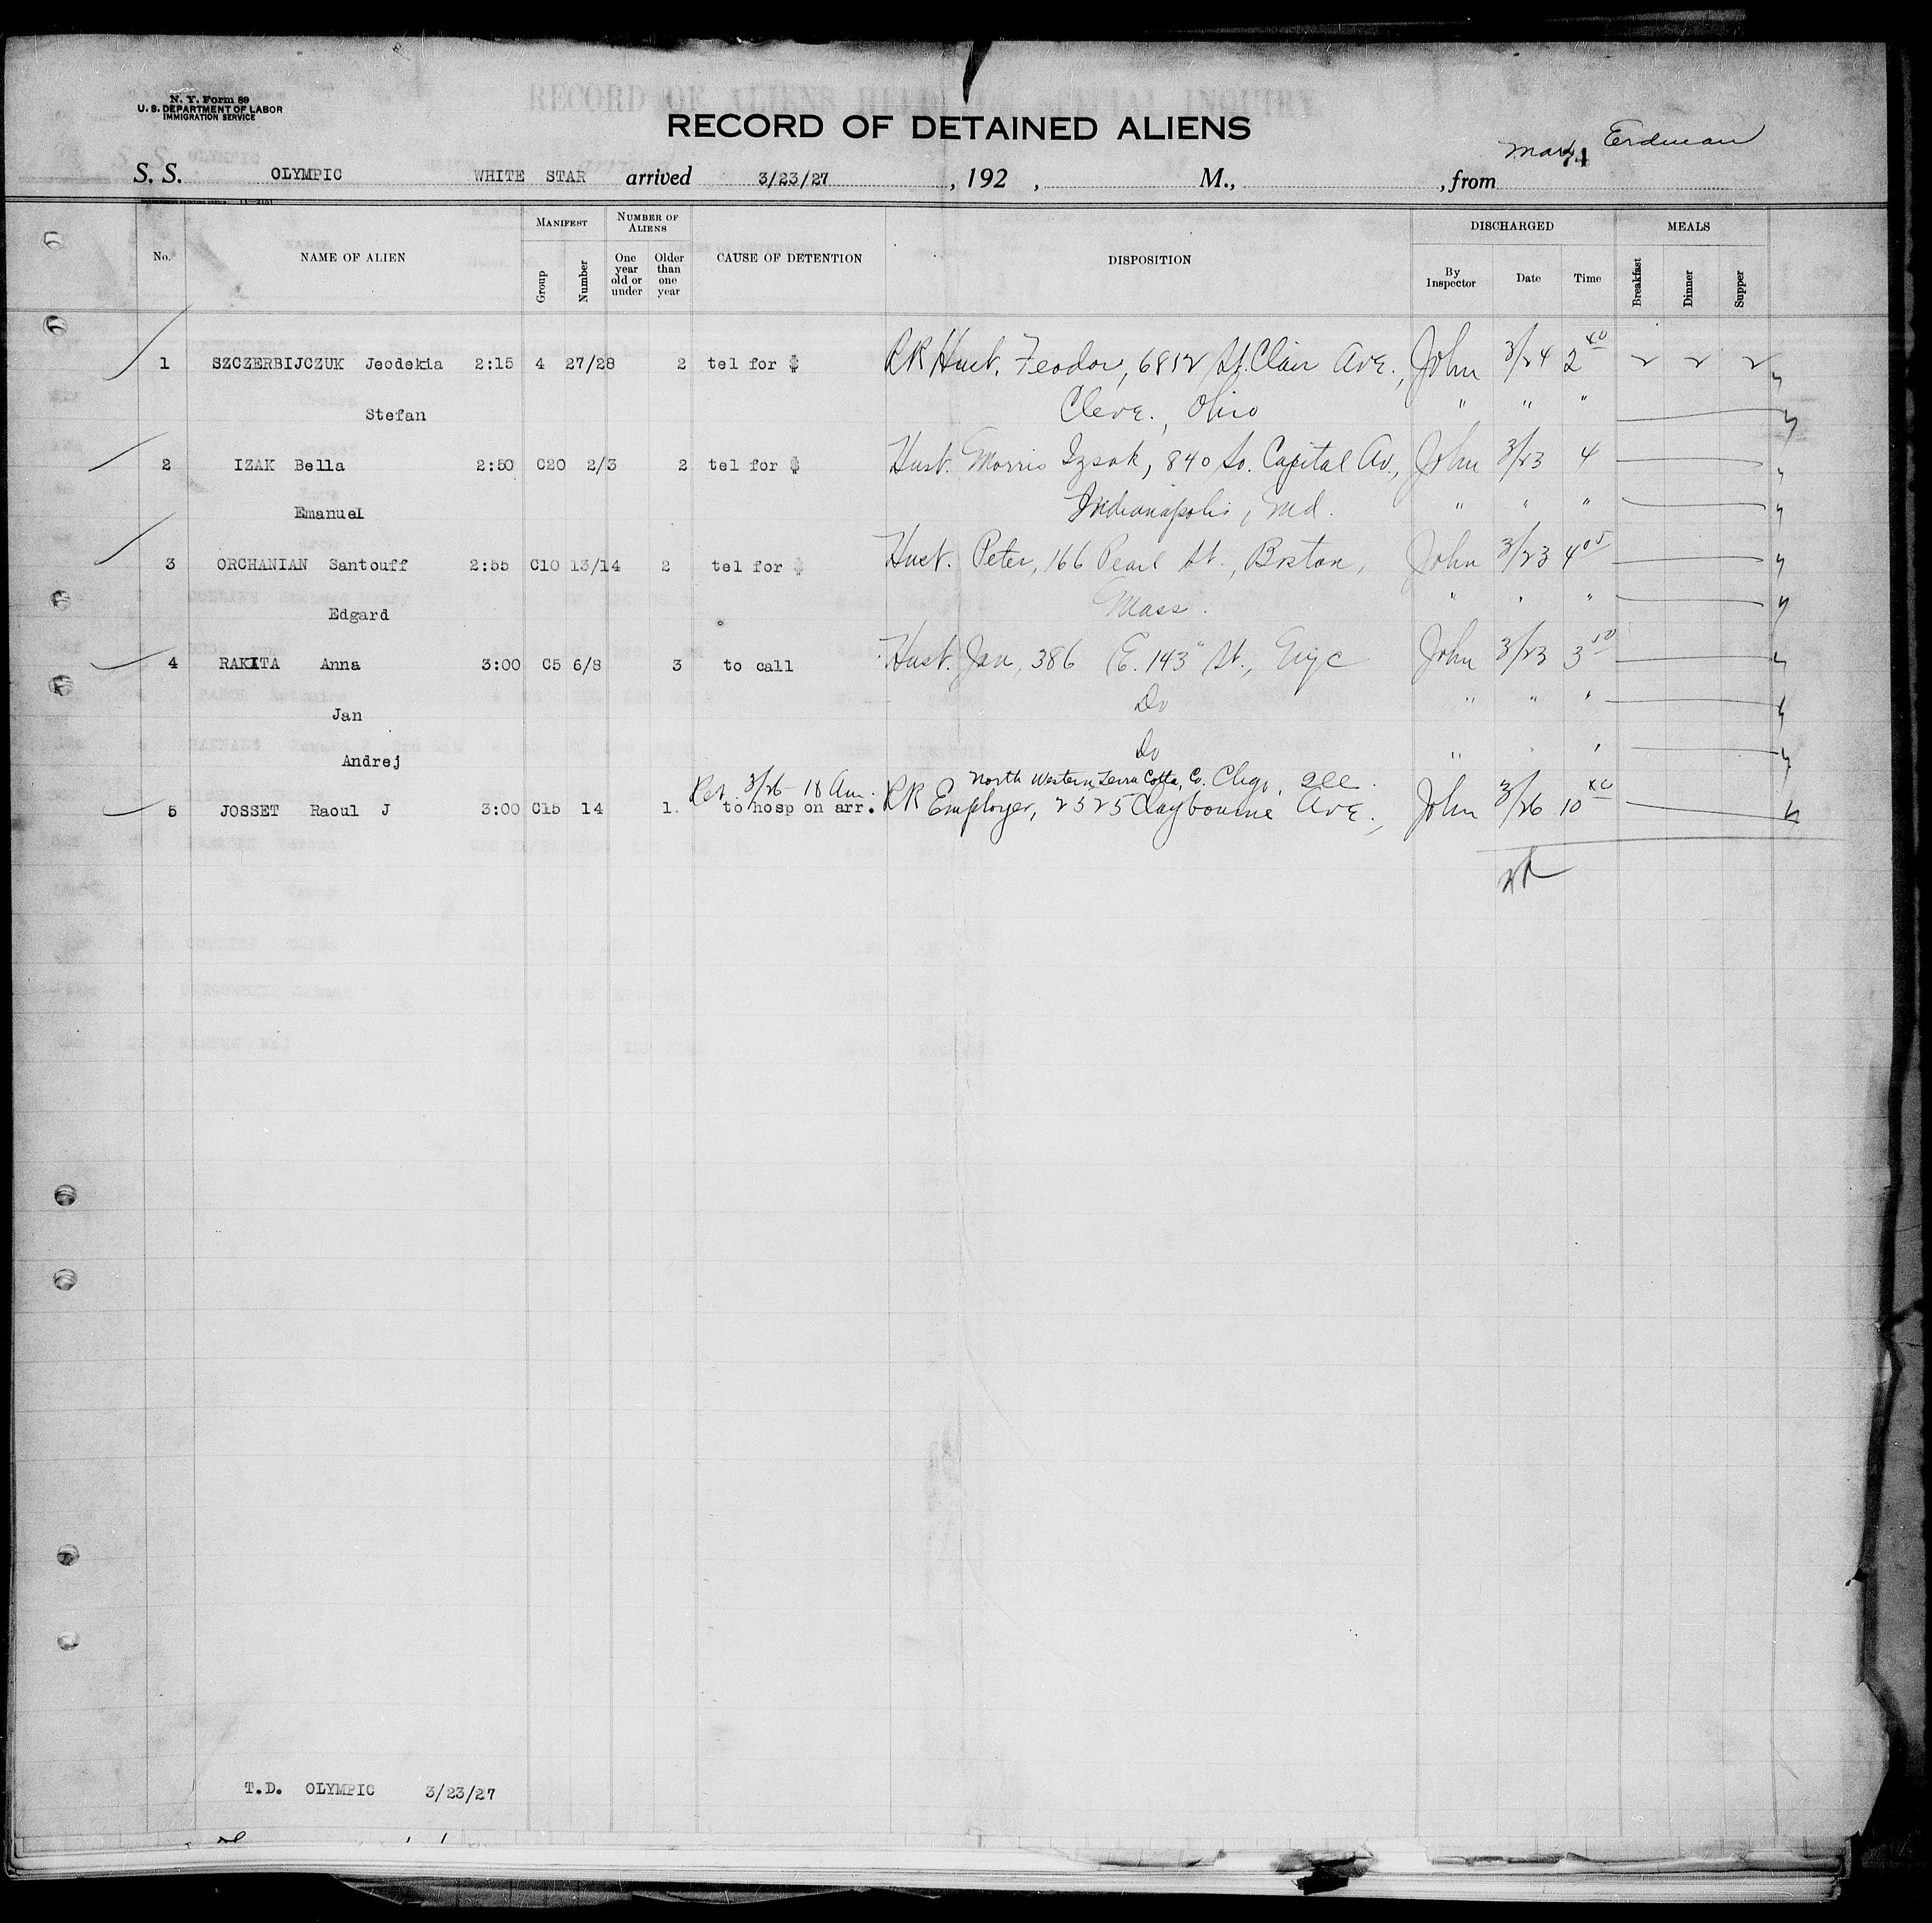 N. Y. Form 89
U. S. DEPARTMENT OF LABOR
IMMIGRATION SERVICE
RECORD OF DETAINED ALIENS
Erdman
S. S. OLYMPIC WHITE STAR arrived 3/23/27, 192 , M., , from
No. NAME OF ALIEN MANIFEST Group Number NUMBER OF ALIENS One year old or under Older than one year CAUSE OF DETENTION DISPOSITION DISCHARGED By Inspector Date Time MEALS Breakfast Dinner Supper
1 SZCZERBIJCZUK Jeodekia 2:15 4 27/28 2 tel for $ RR Husb. Feodor, 6812 St. Clair Ave., John 3/24 2 40
Stefan Cleve., Ohio " " "
2 IZAK Bella 2:50 C20 2/3 2 tel for $ Husb. Morris Izsak, 840 So. Capital Av., John 3/23 4
Emanuel Indianapolis, Ind. " " "
3 ORCHANIAN Santouff 2:55 C10 13/14 2 tel for $ Husb. Peter, 166 Pearl St., Boston, John 3/23 4 05
Edgard Mass. " " "
4 RAKITA Anna 3:00 C5 6/8 3 to call Husb. Jan, 386 E. 143" St., Nyc John 3/23 3 10
Jan Do " " "
Andrej Do " " "
North Western Terra Cotta, Co. Chgo, Ill.
5 JOSSET Raoul J 3:00 C15 14 1 to hosp on arr. RR Employer, 2525 Claybourne Ave., John 3/26 10
T.D. OLYMPIC 3/23/27